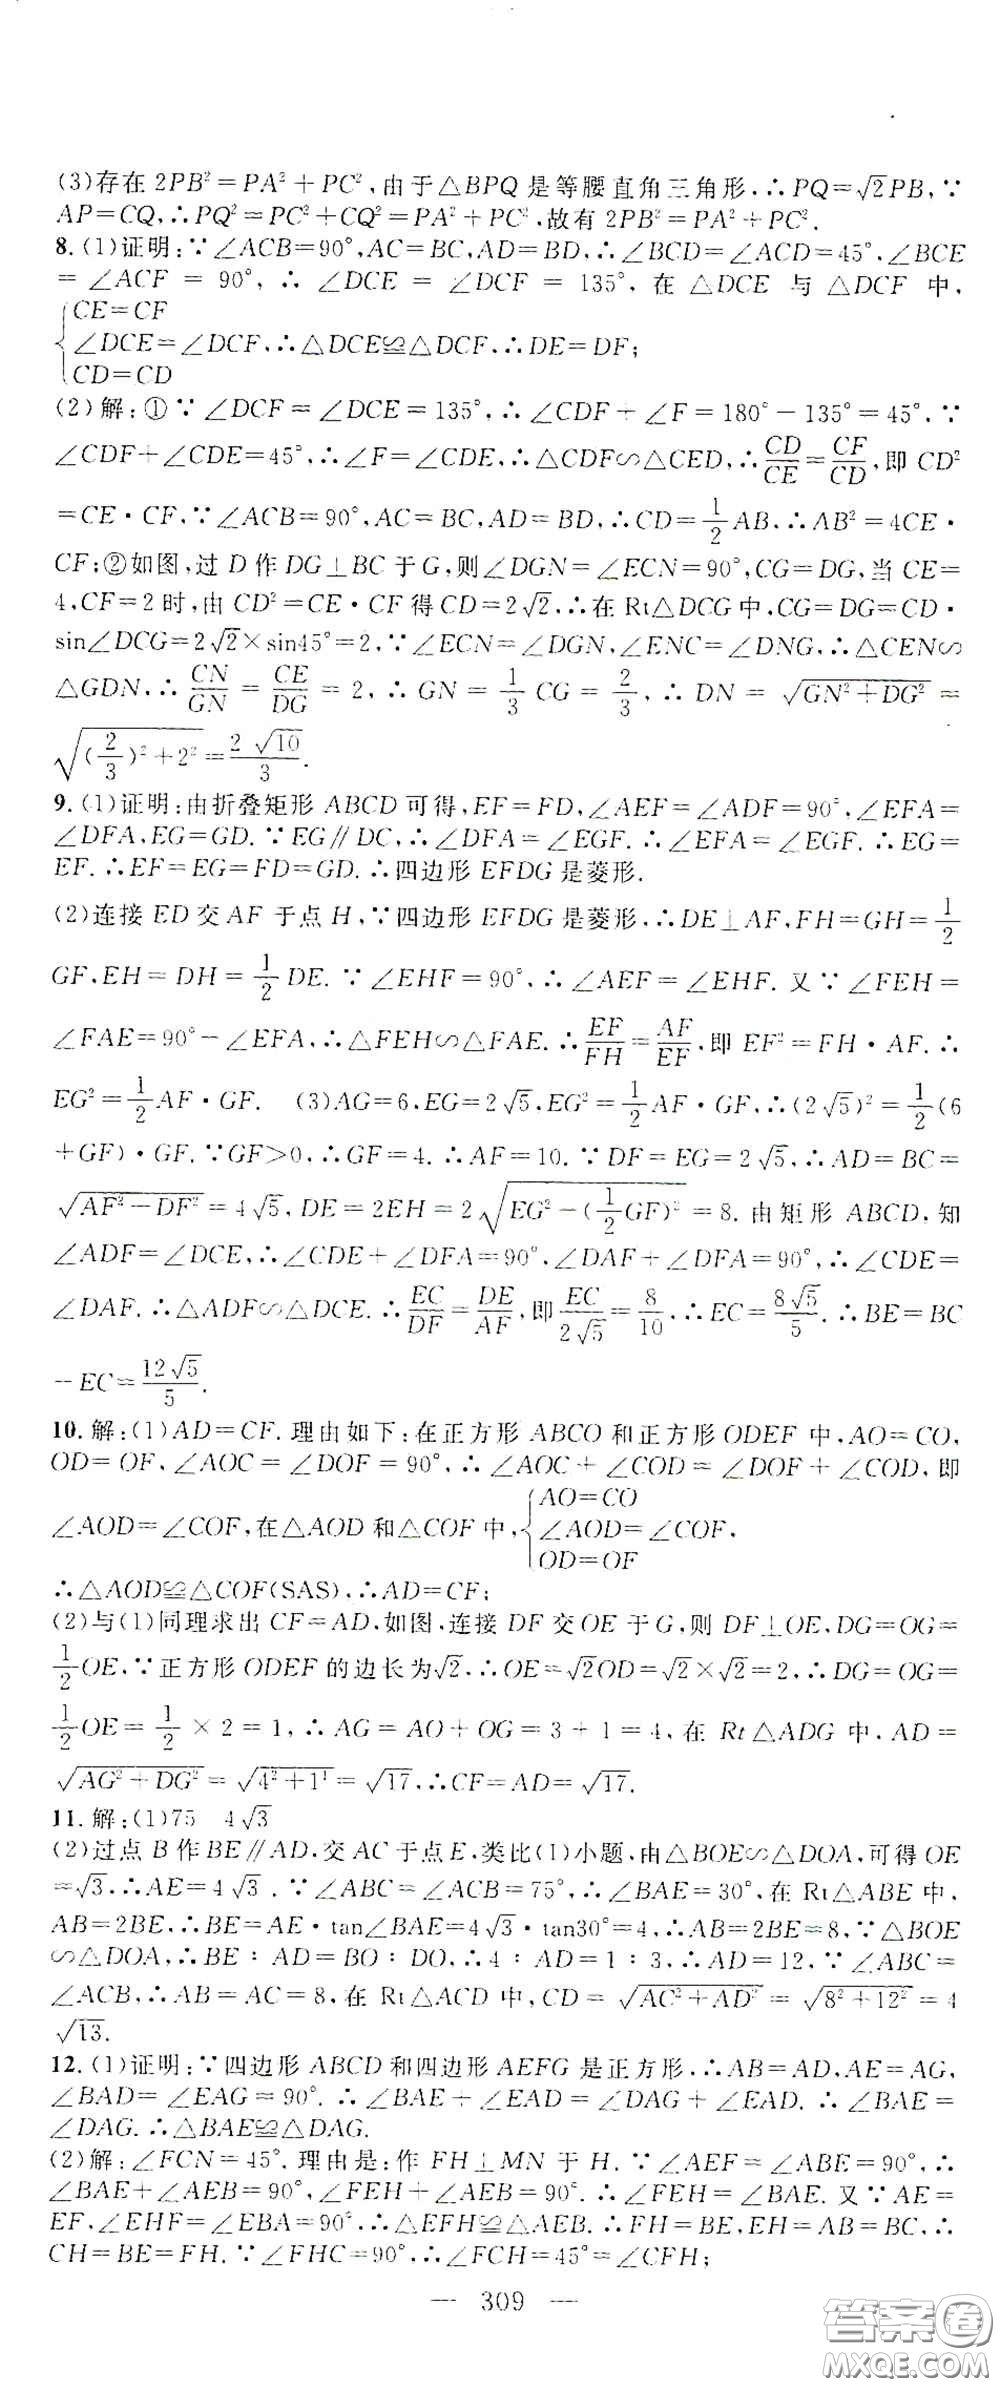 (3)存在 2PB²=PA²+PC²,由于△BPQ 是等腰直角三角形,∴PQ=√2PB,∵
AP=CQ,∴PQ²=PC²+CQ²=PA²+PC²,故有 2PB²=PA²+PC².
8.(1)证明:∵∠ACB=90°,AC=BC,AD=BD,∴∠BCD=∠ACD=45°,∠BCE
=∠ACF=90°,∴∠DCE=∠DCF=135°,在△DCE 与△DCF 中,
{CE=CF
∠DCE=∠DCF,∴△DCE≌△DCF,∴DE=DF;
CD=CD
(2)解:①∵∠DCF=∠DCE=135°,∴∠CDF+∠F=180°-135°=45°,∵
∠CDF+∠CDE=45°,∴∠F=∠CDE,∴△CDF∽△CED,∴CD/CE=CF/CD,即 CD²
=CE·CF,∵∠ACB=90°,AC=BC,AD=BD,∴CD=1/2AB,∴AB²=4CE·
CF;②如图,过 D 作 DG⊥BC 于 G,则∠DGN=∠ECN=90°,CG=DG,当 CE=
4,CF=2 时,由 CD²=CE·CF 得 CD=2√2,∴在 Rt△DCG 中,CG=DG=CD·
sin∠DCG=2√2×sin45°=2,∵∠ECN=∠DGN,∠ENC=∠DNG,∴△CEN∽
△GDN,∴CN/GN=CE/DG=2,∴GN=1/3CG=2/3,∴DN=√(GN²+DG²)=
√((2/3)²+2²)=2√10/3.
9.(1)证明:由折叠矩形 ABCD 可得,EF=FD,∠AEF=∠ADF=90°,∠EFA=
∠DFA,EG=GD.∵EG∥DC,∴∠DFA=∠EGF.∴∠EFA=∠EGF.∴EG=
EF.∴EF=EG=FD=GD.∴四边形 EFDG 是菱形.
(2)连接 ED 交 AF 于点 H,∵四边形 EFDG 是菱形,∴DE⊥AF,FH=GH=1/2
GF,EH=DH=1/2DE.∵∠EHF=90°,∴∠AEF=∠EHF.又∵∠FEH=
∠FAE=90°-∠EFA,∴△FEH∽△FAE.∴EF/FH=AF/EF,即 EF²=FH·AF.∴
EG²=1/2AF·GF. (3)AG=6,EG=2√5,EG²=1/2AF·GF,∴(2√5)²=1/2(6
+GF)·GF.∵GF>0,∴GF=4.∴AF=10.∵DF=EG=2√5,∴AD=BC=
√(AF²-DF²)=4√5,DE=2EH=2√(EG²-(1/2GF)²)=8.由矩形 ABCD,知
∠ADF=∠DCE,∴∠CDE+∠DFA=90°,∠DAF+∠DFA=90°,∴∠CDE=
∠DAF.∴△ADF∽△DCE.∴EC/DF=DE/AF,即EC/2√5=8/10,∴EC=8√5/5.∴BE=BC
-EC=12√5/5.
10.解:(1)AD=CF.理由如下:在正方形 ABCO 和正方形 ODEF 中,AO=CO,
OD=OF,∠AOC=∠DOF=90°,∴∠AOC+∠COD=∠DOF+∠COD,即
∠AOD=∠COF,在△AOD 和△COF 中,{AO=CO
∠AOD=∠COF,
OD=OF
∴△AOD≌△COF(SAS),∴AD=CF;
(2)与(1)同理求出 CF=AD,如图,连接 DF 交 OE 于 G,则 DF⊥OE,DG=OG=
1/2OE,∵正方形 ODEF 的边长为√2,∴OE=√2OD=√2×√2=2,∴DG=OG=
1/2OE=1/2×2=1,∴AG=AO+OG=3+1=4,在 Rt△ADG 中,AD=
√(AG²+DG²)=√(4²+1¹)=√17,∴CF=AD=√17.
11.解:(1)75 4√3
(2)过点 B 作 BE∥AD,交 AC 于点 E,类比(1)小题,由△BOE∽△DOA,可得 OE
=√3,∴AE=4√3.∵∠ABC=∠ACB=75°,∴∠BAE=30°,在 Rt△ABE 中,
AB=2BE,∴BE=AE·tan∠BAE=4√3·tan30°=4,∴AB=2BE=8,∵△BOE
∽△DOA,∴BE:AD=BO:DO,∴4:AD=1:3,∴AD=12,∵∠ABC=
∠ACB,∴AB=AC=8,在 Rt△ACD 中,CD=√(AC²+AD²)=√(8²+12²)=4
√13.
12.(1)证明:∵四边形 ABCD 和四边形 AEFG 是正方形,∴AB=AD,AE=AG,
∠BAD=∠EAG=90°.∴∠BAE+∠EAD=∠DAG+∠EAD.∴∠BAE=
∠DAG.∴△BAE≌△DAG.
(2)解:∠FCN=45°.理由是:作 FH⊥MN 于 H.∵∠AEF=∠ABE=90°,∴
∠BAE+∠AEB=90°,∠FEH+∠AEB=90°.∴∠FEH=∠BAE.又∵AE=
EF,∠EHF=∠EBA=90°,∴△EFH≌△AEB.∴FH=BE,EH=AB=BC,∴
CH=BE=FH.∵∠FHC=90°,∴∠FCH=45°=∠CFH;
— 309 —
答案圈
MXQE.COM